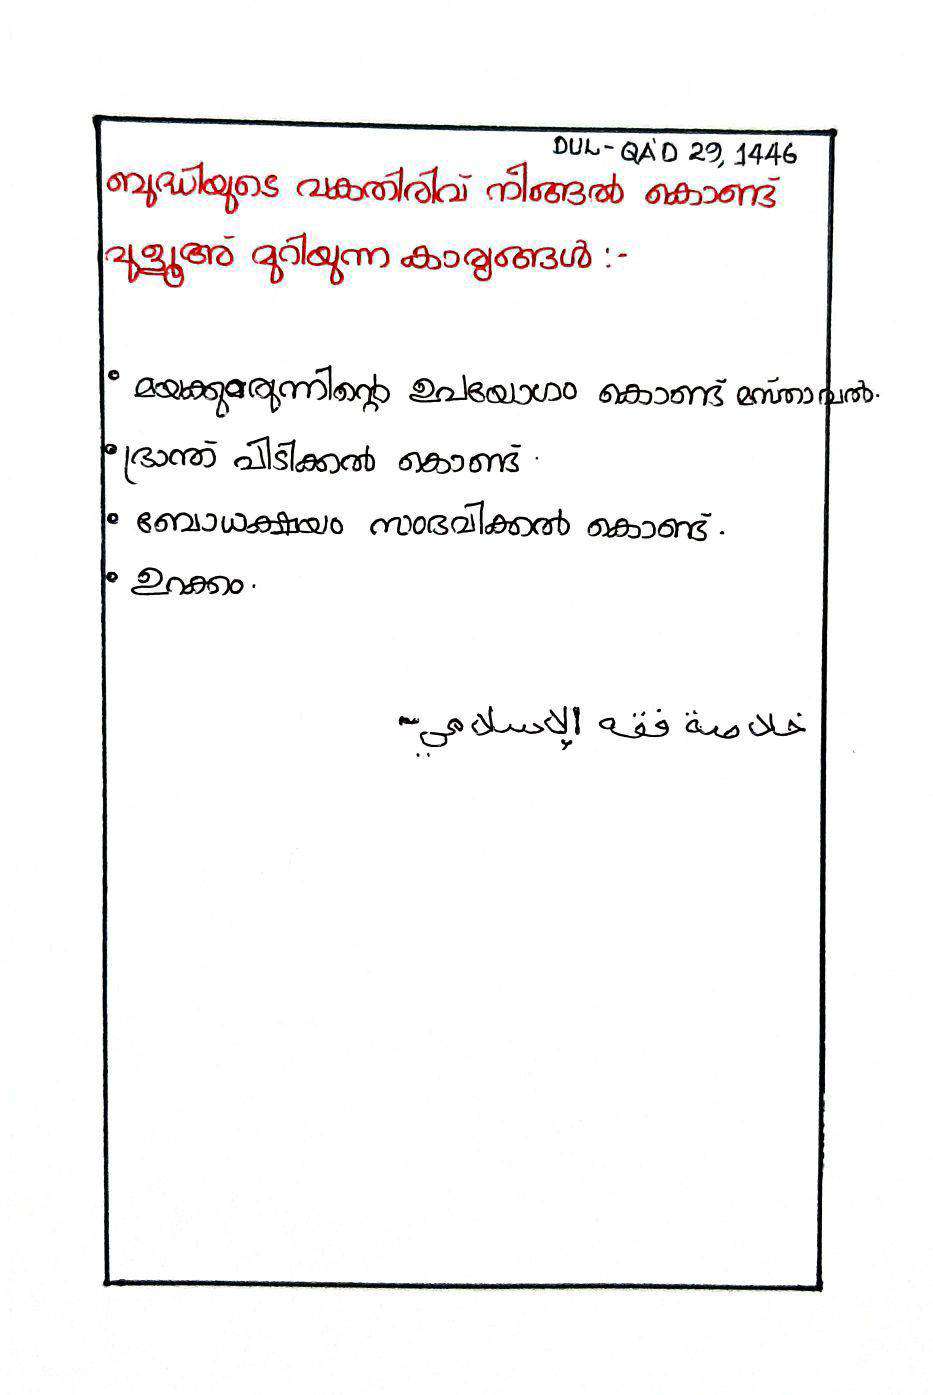 DUL-QA'D 29, 1446
ബുദ്ധിയുടെ വകതിരിവ് നീങ്ങൽ കൊണ്ട്
വുളൂഅ് മുറിയുന്ന കാര്യങ്ങൾ :-
• മയക്കുമരുന്നിൻ്റെ ഉപയോഗം കൊണ്ട് മസ്താവൽ.
• ഭ്രാന്ത് പിടിക്കൽ കൊണ്ട്.
• ബോധക്ഷയം സംഭവിക്കൽ കൊണ്ട്.
• ഉറക്കം.
خلاصة فقه الإسلامي~